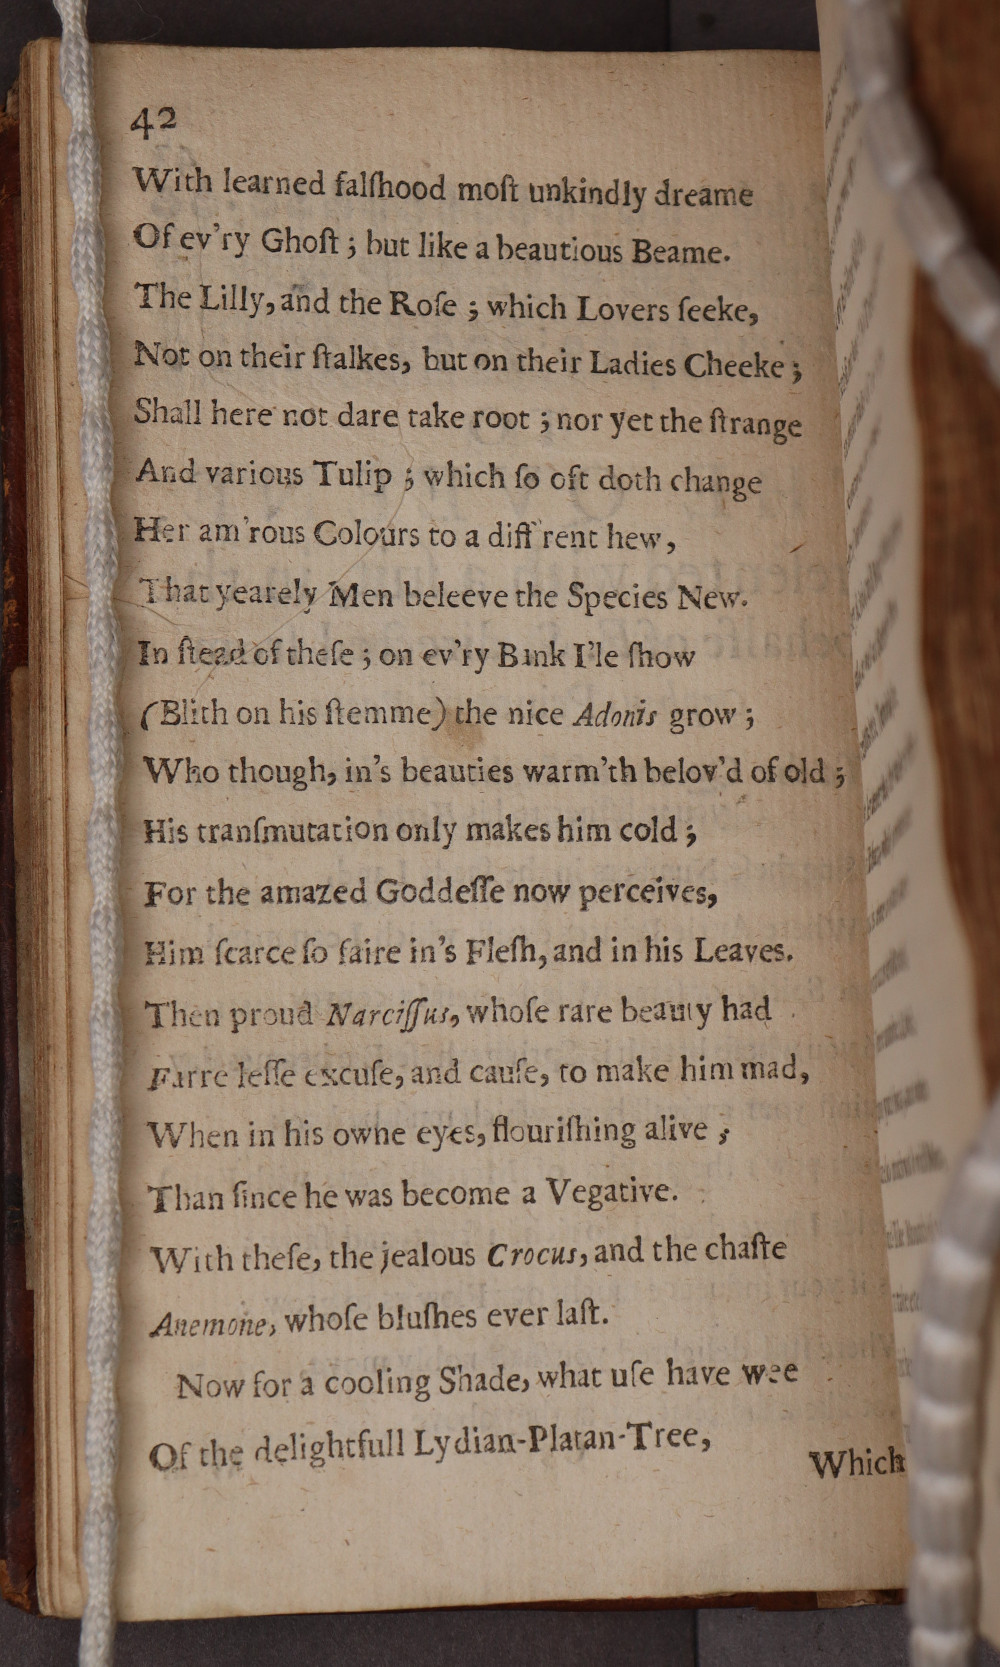 42
With learned falſhood moſt unkindly dreame
Of ev'ry Ghoſt ; but like a beautious Beame.
The Lilly, and the Roſe ; which Lovers ſeeke,
Not on their ſtalkes, but on their Ladies Cheeke ;
Shall here not dare take root ; nor yet the ſtrange
And various Tulip ; which ſo oft doth change
Her am'rous Colours to a diff'rent hew,
That yearely Men beleeve the Species New.
In ſtead of theſe ; on ev'ry Bank I'le ſhow
(Blith on his ſtemme) the nice Adonis grow ;
Who though, in's beauties warm'th belov'd of old ;
His tranſmutation only makes him cold ;
For the amazed Goddeſſe now perceives,
Him ſcarce ſo faire in's Fleſh, and in his Leaves.
Then proud Narciſſus, whoſe rare beauty had
Farre leſſe excuſe, and cauſe, to make him mad,
When in his owne eyes, flouriſhing alive ;
Than ſince he was become a Vegative.
With theſe, the jealous Crocus, and the chaſte
Anemone, whoſe bluſhes ever laſt.
Now for a cooling Shade, what uſe have wee
Of the delightfull Lydian-Platan-Tree,
Which